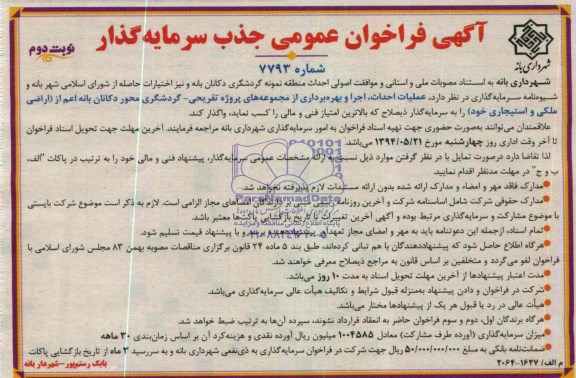 آگهی فراخوان عمومی جذب سرمایه‌گذار
نوبت دوم
شهرداری بانه
شماره ۷۷۹۳
شهرداری بانه به استناد مصوبات ملی و استانی و موافقت اصولی احداث منطقه نمونه گردشگری دکانان بانه و نیز اختیارات حاصله از شورای اسلامی شهر بانه و
شیوه‌نامه سرمایه‌گذاری در نظر دارد، عملیات احداث، اجرا و بهره‌برداری از مجموعه‌های پروژه تفریحی- گردشگری محور دکانان بانه اعم از (اراضی
ملکی و استیجاری خود) را به سرمایه‌گذار ذیصلاح که بالاترین امتیاز فنی و مالی را کسب نماید، واگذار کند.
علاقمندان می‌توانند به‌صورت حضوری جهت تهیه اسناد فراخوان به امور سرمایه‌گذاری شهرداری بانه مراجعه فرمایند. آخرین مهلت جهت تحویل اسناد فراخوان
تا آخر وقت اداری روز چهارشنبه مورخ ۱۳۹۴/۰۵/۲۱ می‌باشد.
لذا تقاضا دارد درصورت تمایل با در نظر گرفتن موارد ذیل نسبت به ارائه مشخصات عمومی سرمایه‌گذار، پیشنهاد فنی و مالی خود را به ترتیب در پاکات "الف،
ب و ج" در مهلت مدنظر اقدام نمایید.
•مدارک فاقد مهر و امضاء و مدارک ارائه شده بدون ارائه مستندات لازم پذیرفته نخواهد شد.
•مدارک حقوقی شرکت شامل اساسنامه شرکت و آخرین روزنامه رسمی مبنی بر دارندگان امضاهای مجاز الزامی است. لازم به ذکر است موضوع شرکت بایستی
با موضوع مشارکت و سرمایه‌گذاری مرتبط بوده و آگهی آخرین تغییرات تا تاریخ بازگشایی پاکت‌ها معتبر باشد.
•تمام اسناد، ازجمله این دعوتنامه باید به مهر و امضای مجاز تعهدآور پیشنهاددهنده و با پیشنهاد قیمت تسلیم شود.
•هرگاه اطلاع حاصل شود که پیشنهاددهندگان با هم تبانی کرده‌اند، طبق بند ۵ ماده ۲۴ قانون برگزاری مناقصات مصوبه بهمن ۸۳ مجلس شورای اسلامی با
فراخوان لغو می‌گردد و متخلفین بر اساس قانون به مراجع ذیصلاح معرفی خواهند شد.
•مدت اعتبار پیشنهادها از آخرین مهلت تحویل اسناد به مدت ۱۰ روز می‌باشد.
•شرکت در فراخوان و دادن پیشنهاد به‌منزله قبول شرایط و تکالیف هیأت عالی سرمایه‌گذاری می‌باشد.
•هیأت عالی در رد یا قبول هر یک از پیشنهادها مختار می‌باشد.
•هرگاه برندگان اول، دوم و سوم فراخوان حاضر به انعقاد قرارداد نشوند، سپرده آن‌ها به ترتیب ضبط خواهد شد.
•میزان سرمایه‌گذاری (آورده طرف مشارکت) معادل ۱۰۰۴۵۸۵ میلیون ریال آورده نقدی و هزینه‌کرد آن بر اساس زمان‌بندی ۳۰ ماهه
•ضمانت‌نامه بانکی به مبلغ ۵۰/۰۰۰/۰۰۰/۰۰۰ ریال جهت شرکت در فراخوان سرمایه‌گذاری به ذی‌نفعی شهرداری بانه و به سررسید ۳ ماه از تاریخ بازگشایی پاکات
م الف/ ۱۶۲۷-۲۰۶۴
بابک رستم‌پور-شهردار بانه
ParsNamadData